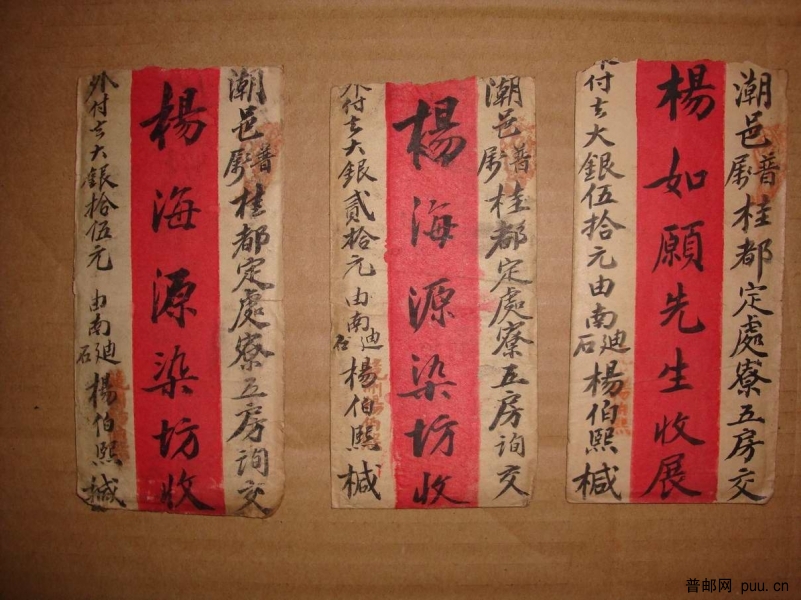 潮邑普尉桂都定處寮五房詢交
楊海源染坊收
外付去大銀拾伍元由南石廸楊伯熙椷
潮邑普尉桂都定處寮五房詢交
楊海源染坊收
外付去大銀貳拾元由南石廸楊伯熙椷
潮邑普尉桂都定處寮五房交
楊如願先生收展
外付去大銀伍拾元由南石廸楊伯熙椷
普邮网 puu.cn